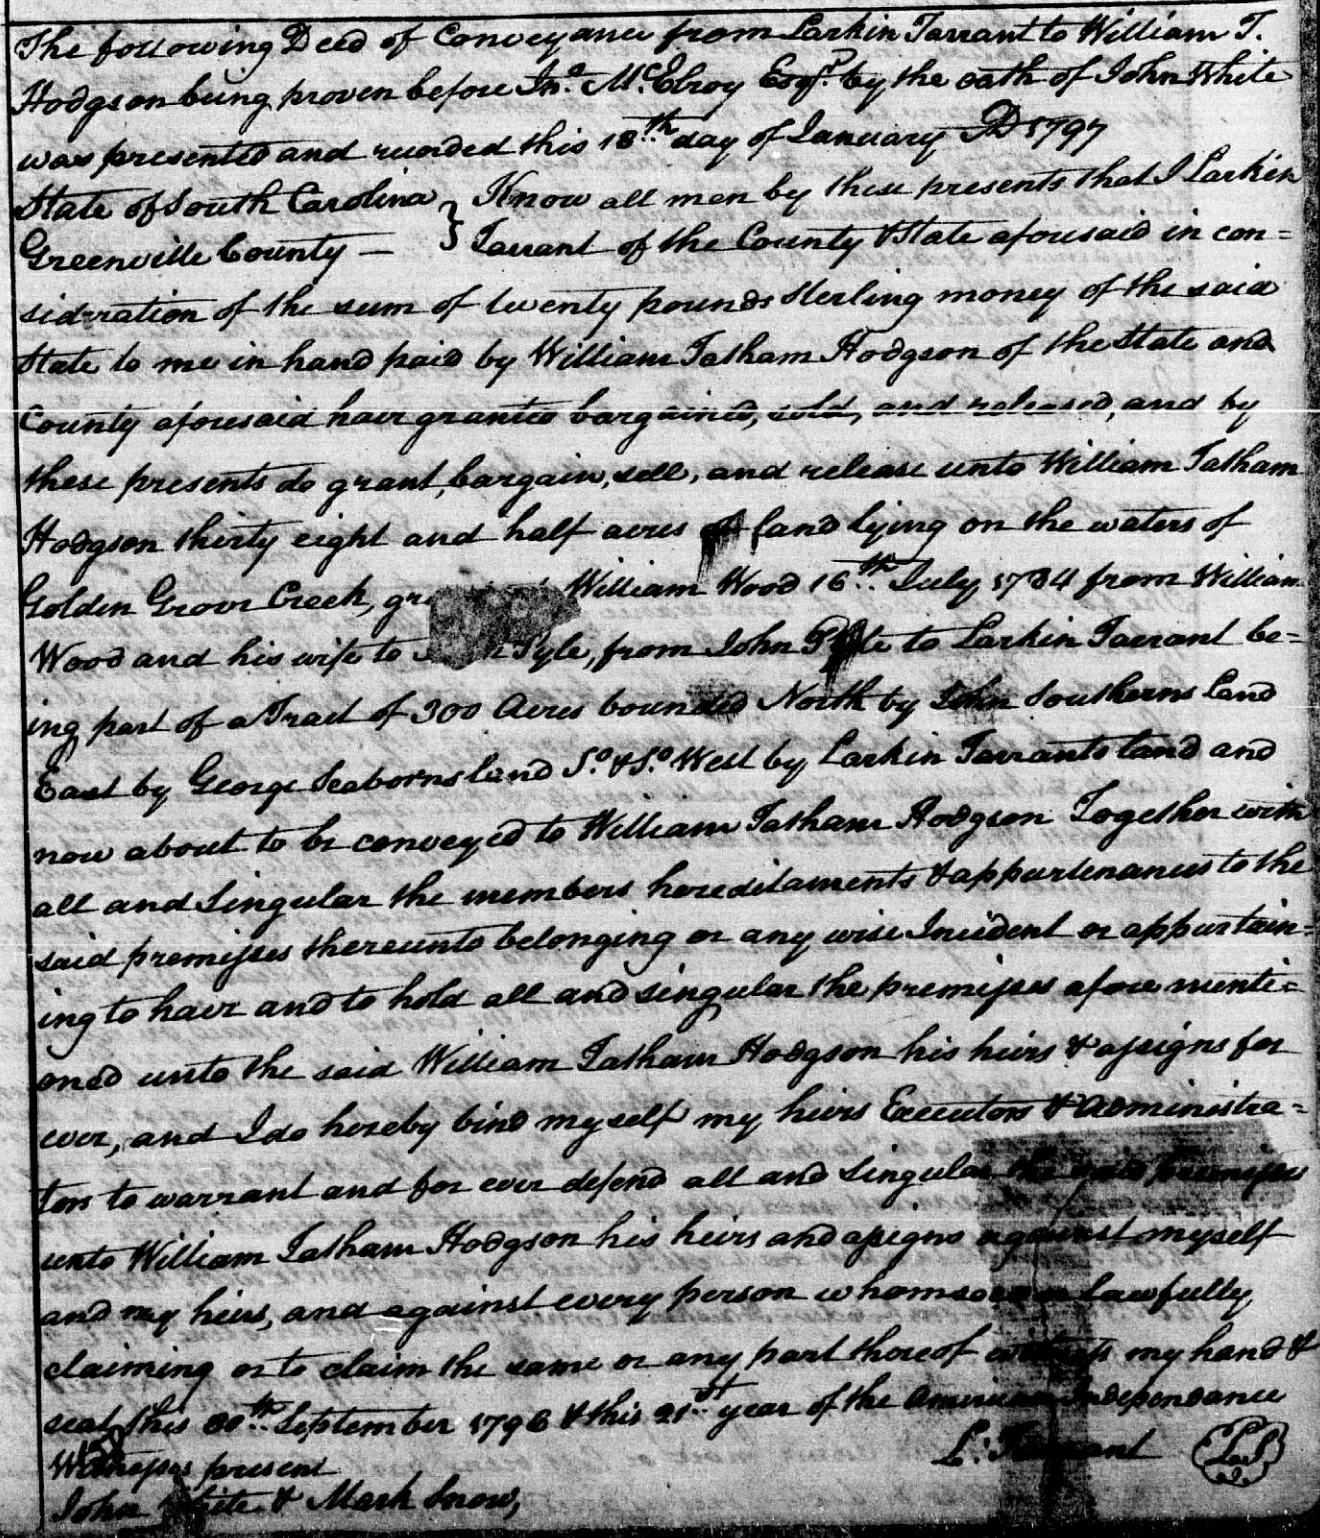 The following Deed of Conveyance from Larkin Tarrant to William T.
Hodgson being proven before Jno. McElroy Esqr. by the oath of John White
was presented and recorded this 18th day of January AD 1797
State of South Carolina } Know all men by these presents that I Larkin
Greenville County — } Tarrant of the County & State aforesaid in con=
sideration of the sum of twenty pounds Sterling money of the said
State to me in hand paid by William Tatham Hodgson of the State and
County aforesaid have granted bargained, sold, and released, and by
these presents do grant, bargain, sell, and release unto William Tatham
Hodgson thirty eight and half acres of land lying on the waters of
Golden Grove Creek, William Wood 16th July 1784 from William
Wood and his wife to Pyle, from John Pyle to Larkin Tarrant be=
ing part of a Tract of 300 Acres bounded North by John Southerns Land
East by George Seaborns land So. & So. West by Larkin Tarrants land and
now about to be conveyed to William Tatham Hodgson Together with
all and Singular the members hereditaments & appurtenances to the
said premisses thereunto belonging or any wise Incident or appertain=
ing to have and to hold all and singular the premisses afore menti=
oned unto the said William Tatham Hodgson his heirs & assigns for
ever, and I do hereby bind myself my heirs Executors & Administra=
tors to warrant and for ever defend all and Singular the said premisses
unto William Tatham Hodgson his heirs and assigns against myself
and my heirs, and against every person whomsoever lawfully
claiming or to claim the same or any part thereof witness my hand &
seal this 30th September 1796 & this 21st year of the American Independance
Witnesses present L: Tarrant LS
John White & Mark Snow,